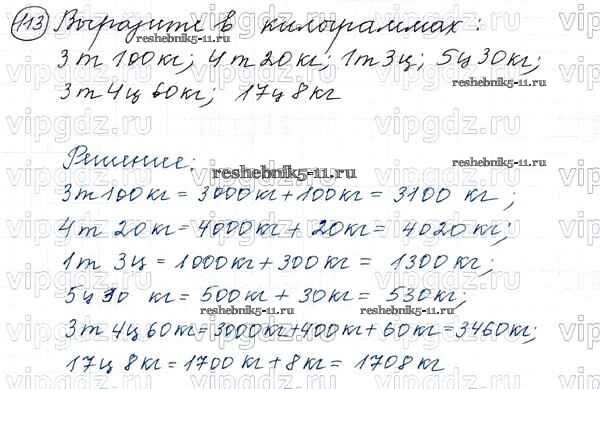 113 Выразите в килограммах:
3т 100кг; 4т 20кг; 1т 3ц; 5ц 30кг;
3т 4ц 60кг; 17ц 8кг
Решение:
3т 100кг = 3000кг + 100кг = 3100 кг;
4т 20кг = 4000кг + 20кг = 4020кг;
1т 3ц = 1000кг + 300кг = 1300кг;
5ц 30 кг = 500кг + 30кг = 530кг;
3т 4ц 60кг = 3000кг + 400кг + 60кг = 3460кг;
17ц 8кг = 1700кг + 8кг = 1708кг